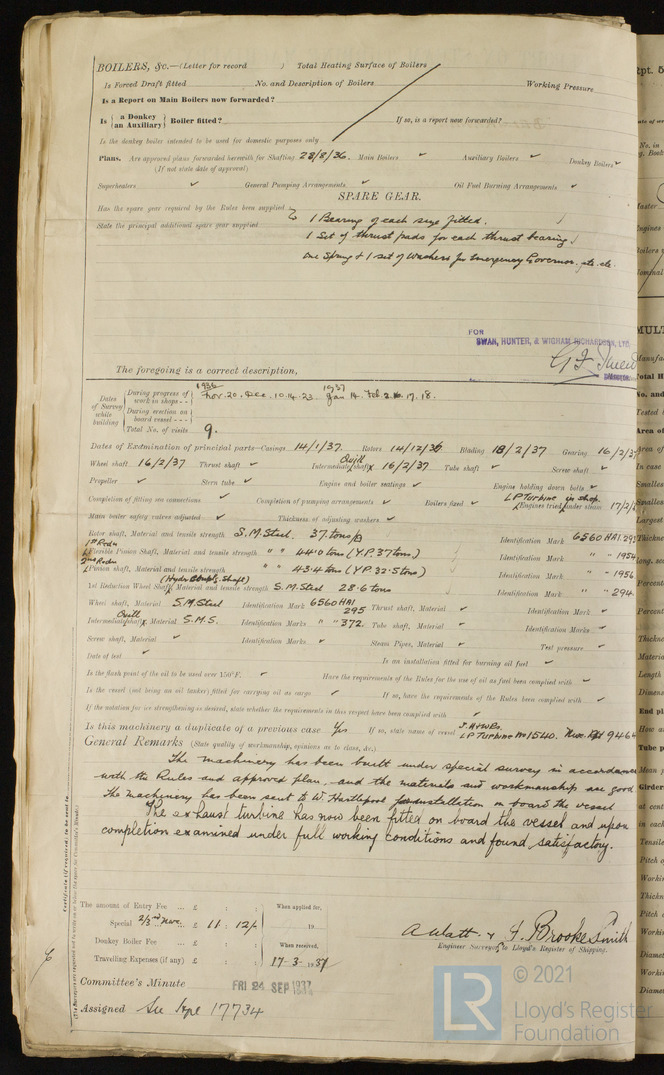 BOILERS, &c.—(Letter for record ) Total Heating Surface of Boilers
Is Forced Draft fitted No. and Description of Boilers Working Pressure
Is a Report on Main Boilers now forwarded?
Is { a Donkey / an Auxiliary } Boiler fitted? If so, is a report now forwarded?
Is the donkey boiler intended to be used for domestic purposes only
Plans. Are approved plans forwarded herewith for Shafting 28/8/36. Main Boilers ✓ Auxiliary Boilers ✓ Donkey Boilers ✓
(If not state date of approval)
Superheaters ✓ General Pumping Arrangements ✓ Oil Fuel Burning Arrangements ✓
SPARE GEAR.
Has the spare gear required by the Rules been supplied
State the principal additional spare gear supplied
1 Bearing of each size fitted.
1 Set of thrust pads for each thrust bearing.
One Spring & 1 set of Washers for Emergency Governor. etc. etc.
FOR
SWAN, HUNTER, & WIGHAM RICHARDSON, LTD.
The foregoing is a correct description,
Dates of Survey while building
During progress of work in shops - - 1936 Nov. 20. Dec. 10. 14. 23 1937 Jan 14. Feb. 2. 16. 17. 18.
During erection on board vessel - - -
Total No. of visits 9.
Dates of Examination of principal parts—Casings 14/1/37. Rotors 14/12/36 Blading 18/2/37 Gearing 16/2/37
Wheel shaft 16/2/37 Thrust shaft ✓ Quill Intermediate shafts 16/2/37 Tube shaft ✓ Screw shaft ✓
Propeller ✓ Stern tube ✓ Engine and boiler seatings ✓ Engine holding down bolts ✓
Completion of fitting sea connections ✓ Completion of pumping arrangements ✓ Boilers fixed ✓ LP Turbine in shop. Engines tried under steam 17/2/
Main boiler safety valves adjusted ✓ Thickness of adjusting washers ✓
Rotor shaft, Material and tensile strength S.M. Steel. 37. tons/□ Identification Mark 6560 HAI.
1st Redn Flexible Pinion Shaft, Material and tensile strength " " 44.0 tons (Y.P. 37 tons) Identification Mark " " 1954
2nd Redn Pinion shaft, Material and tensile strength " " 43.4 tons (YP. 32.5 tons) Identification Mark " " 1956
1st Reduction Wheel Shaft, Material and tensile strength S.M. Steel 28.6 tons Identification Mark " " 294
Wheel shaft, Material S.M. Steel Identification Mark 6560 HAI 295 Thrust shaft, Material ✓ Identification Mark ✓
Quill Intermediate shafts, Material S.M.S. Identification Marks " " 372. Tube shaft, Material ✓ Identification Marks ✓
Screw shaft, Material ✓ Identification Marks ✓ Steam Pipes, Material ✓ Test pressure ✓
Date of test ✓ Is an installation fitted for burning oil fuel ✓
Is the flash point of the oil to be used over 150°F. ✓ Have the requirements of the Rules for the use of oil as fuel been complied with ✓
Is the vessel (not being an oil tanker) fitted for carrying oil as cargo ✓ If so, have the requirements of the Rules been complied with ✓
If the notation for ice strengthening is desired, state whether the requirements in this respect have been complied with ✓
Is this machinery a duplicate of a previous case Yes If so, state name of vessel LP Turbine No 1540. Nwc. Rpt 9464
General Remarks (State quality of workmanship, opinions as to class, &c.)
The machinery has been built under special survey in accordance
with the Rules and approved plan, and the materials and workmanship are good
The machinery has been sent to W. Hartlepool for installation on board the vessel
The exhaust turbine has now been fitted on board the vessel and upon
completion examined under full working conditions and found satisfactory.
The amount of Entry Fee ... £ : : When applied for,
Special 2/3rd Nwc. £ 11 : 12/- 19
Donkey Boiler Fee ... £ : : When received,
Travelling Expenses (if any) £ : : 17-3-1937
A Watt. & F. Brooke Smith
Engineer Surveyors to Lloyd's Register of Shipping.
Committee's Minute FRI 24 SEP 1937
Assigned See Hpl 17734
© 2021
LR
Lloyd's Register
Foundation